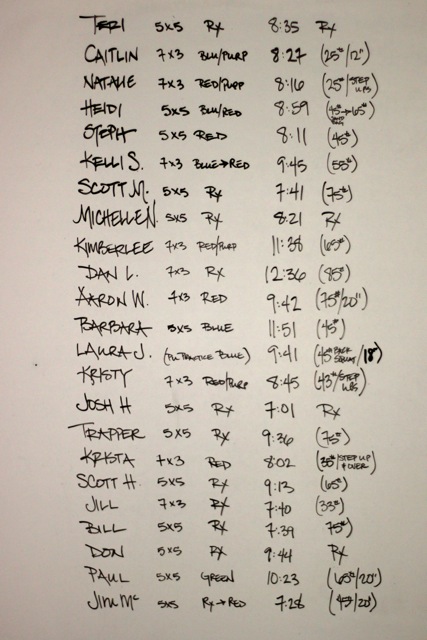 TERI 5x5 Rx 8:35 Rx
CAITLIN 7x3 BLU/PURP 8:27 (25#/12")
NATALIE 7x3 RED/PURP 8:16 (25#/STEP UPS)
HEIDI 5x5 BLU/RED 8:59 (45#→65#)
STEPH 5x5 RED 8:11 (45#)
KELLI S. 7x3 BLUE→RED 9:45 (55#)
SCOTT M. 5x5 Rx 7:41 (75#)
MICHELLE N. 5x5 Rx 8:21 Rx
KIMBERLEE 7x3 RED/PURP 11:38 (65#)
DAN L. 7x3 Rx 12:36 (85#)
AARON W. 7x3 RED 9:42 (75#/20")
BARBARA 5x5 BLUE 11:51 (45#)
LAURA J. (PU PRACTICE BLUE) 9:41 (45# BACK SQUAT/18")
KRISTY 7x3 RED/PURP 8:45 (43#/STEP UPS)
JOSH H 5x5 Rx 7:01 Rx
TRAPPER 5x5 Rx 9:36 (75#)
KRISTA 7x3 RED 8:02 (35#/STEP UP + OVER)
SCOTT H. 5x5 Rx 9:13 (65#)
JILL 7x3 Rx 7:40 (33#)
BILL 5x5 Rx 7:39 75#)
DON 5x5 Rx 9:44 Rx
PAUL 5x5 GREEN 10:23 (65#/20")
JIM Mc 5x5 Rx→RED 7:28 (45#/20")